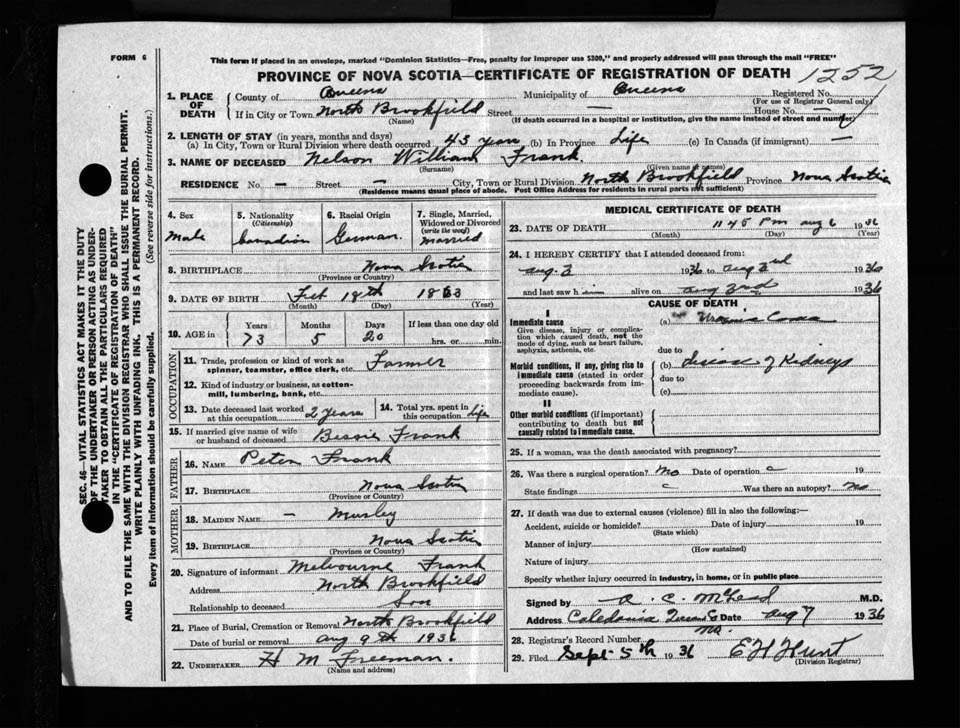 FORM 6
This form if placed in an envelope, marked "Dominion Statistics—Free, penalty for improper use $300," and properly addressed will pass through the mail "FREE"
PROVINCE OF NOVA SCOTIA—CERTIFICATE OF REGISTRATION OF DEATH 1252
SEC. 46—VITAL STATISTICS ACT MAKES IT THE DUTY
OF THE UNDERTAKER OR PERSON ACTING AS UNDER-
TAKER TO OBTAIN ALL THE PARTICULARS REQUIRED
IN THE "CERTIFICATE OF REGISTRATION OF DEATH"
AND TO FILE THE SAME WITH THE DIVISION REGISTRAR WHO SHALL ISSUE THE BURIAL PERMIT.
WRITE PLAINLY WITH UNFADING INK. THIS IS A PERMANENT RECORD.
Every item of information should be carefully supplied. (See reverse side for instructions.)
1. PLACE OF DEATH
County of Queens Municipality of Queens Registered No.
(For use of Registrar General only)
If in City or Town North Brookfield Street — House No. —
(Name) (If death occurred in a hospital or institution, give the name instead of street and number)
2. LENGTH OF STAY (in years, months and days)
(a) In City, Town or Rural Division where death occurred 43 years (b) In Province Life (c) In Canada (if immigrant) —
3. NAME OF DECEASED Nelson William Frank
(Surname) (Given name or names)
RESIDENCE No. — Street — City, Town or Rural Division North Brookfield Province Nova Scotia
(Residence means usual place of abode. Post Office Address for residents in rural parts not sufficient)
4. Sex Male
5. Nationality (Citizenship) Canadian
6. Racial Origin German.
7. Single, Married, Widowed or Divorced (write the word) married
8. BIRTHPLACE Nova Scotia
(Province or Country)
9. DATE OF BIRTH Feb 18th 1863
(Month) (Day) (Year)
10. AGE in Years 73 Months 5 Days 20 If less than one day old hrs. or min.
OCCUPATION
11. Trade, profession or kind of work as spinner, teamster, office clerk, etc. Farmer
12. Kind of industry or business, as cotton-mill, lumbering, bank, etc.
13. Date deceased last worked at this occupation 2 years
14. Total yrs. spent in this occupation Life
15. If married give name of wife or husband of deceased Bessie Frank
FATHER
16. NAME Peter Frank
17. BIRTHPLACE Nova Scotia
(Province or Country)
MOTHER
18. MAIDEN NAME —
19. BIRTHPLACE Nova Scotia
(Province or Country)
20. Signature of informant Melbourne Frank
Address North Brookfield
Relationship to deceased Son
21. Place of Burial, Cremation or Removal North Brookfield
Date of burial or removal Aug 9th 1936
22. UNDERTAKER H M Freeman.
(Name and address)
MEDICAL CERTIFICATE OF DEATH
23. DATE OF DEATH 1145 Pm Aug 6 1936
(Month) (Day) (Year)
24. I HEREBY CERTIFY that I attended deceased from:
Aug. 3 1936 to Aug 3rd 1936
and last saw h im alive on Aug 3rd 1936
CAUSE OF DEATH
I
Immediate cause (a) Uraemia Coma
Give disease, injury or complication which caused death, not the mode of dying, such as heart failure, asphyxia, asthenia, etc.
due to
Morbid conditions, if any, giving rise to immediate cause (stated in order proceeding backwards from immediate cause). (b) disease of Kidneys
due to
(c)
II
Other morbid conditions (if important) contributing to death but not causally related to immediate cause.
25. If a woman, was the death associated with pregnancy?
26. Was there a surgical operation? No Date of operation 19
State findings Was there an autopsy? No
27. If death was due to external causes (violence) fill in also the following:—
Accident, suicide or homicide? Date of injury 19
(State which)
Manner of injury
(How sustained)
Nature of injury
Specify whether injury occurred in industry, in home, or in public place
Signed by A. C. McLeod M.D.
Address Caledonia Queens Co Date Aug 7 1936
N.S.
28. Registrar's Record Number
29. Filed Sept 5th 1936 E H Hunt
(Division Registrar)